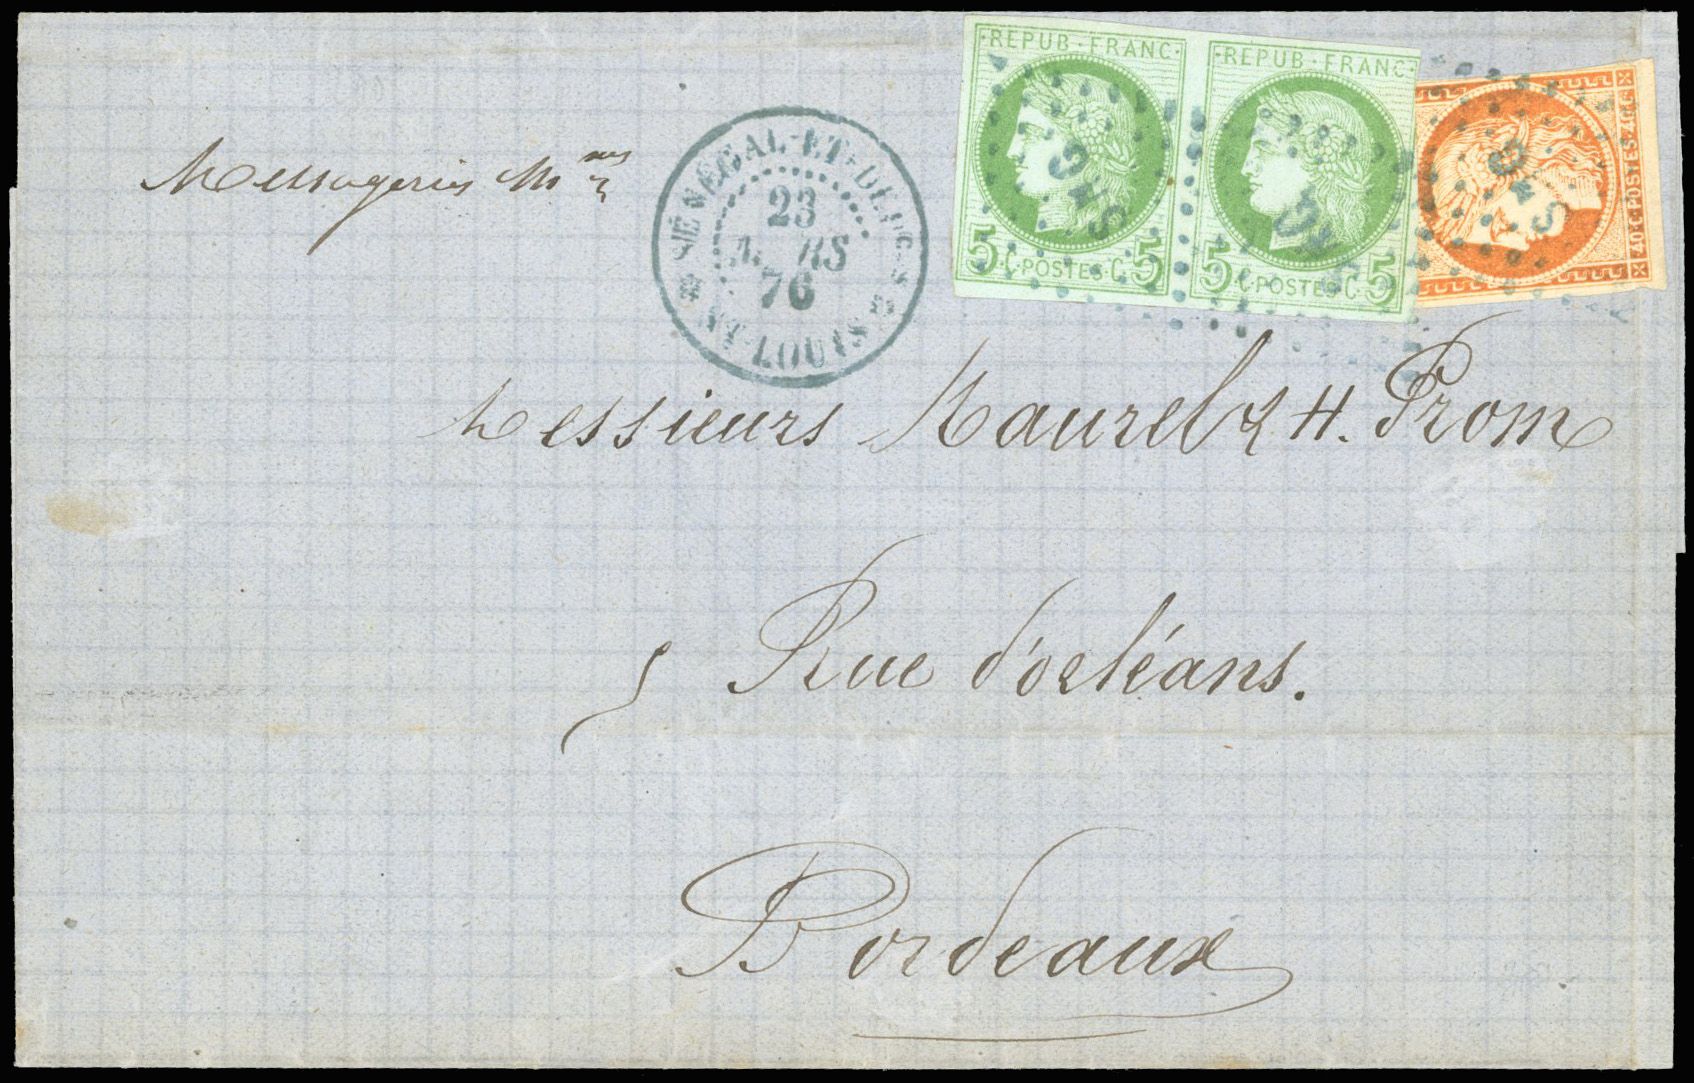 REPUB·FRANC·
5·C·POSTES·C·5
REPUB·FRANC·
5·C·POSTES·C·5
40·C·POSTES·40·C
SÉNÉGAL-ET-DÉP.CES
23
MARS
76
ST-LOUIS
Messageries Mmes
Messieurs Maurel & H. Prom
5 Rue d'orléans.
Bordeaux